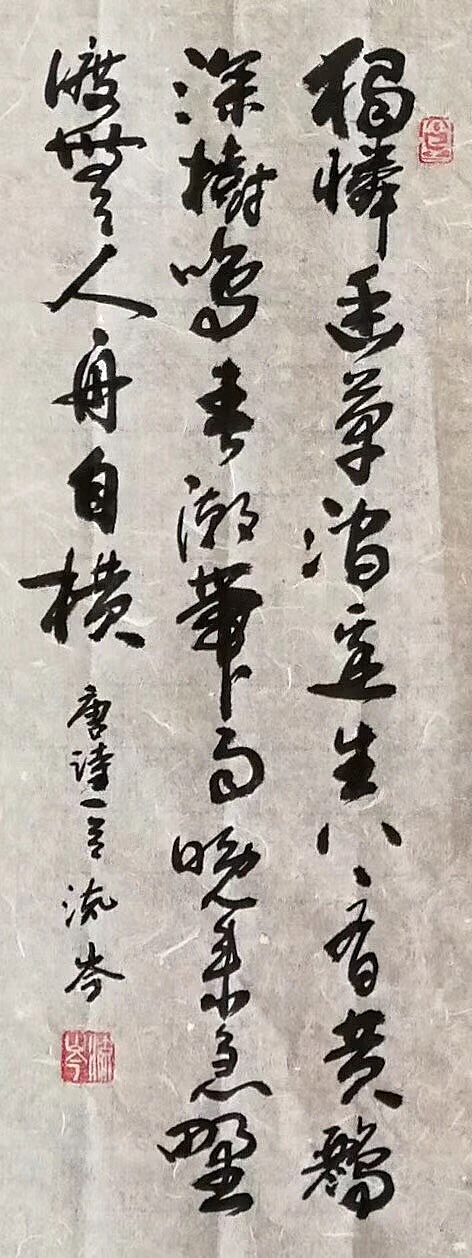 獨憐幽草澗邊生上有黃鸝
深樹鳴春潮帶雨晚來急野
渡無人舟自橫
唐詩一首 流岑